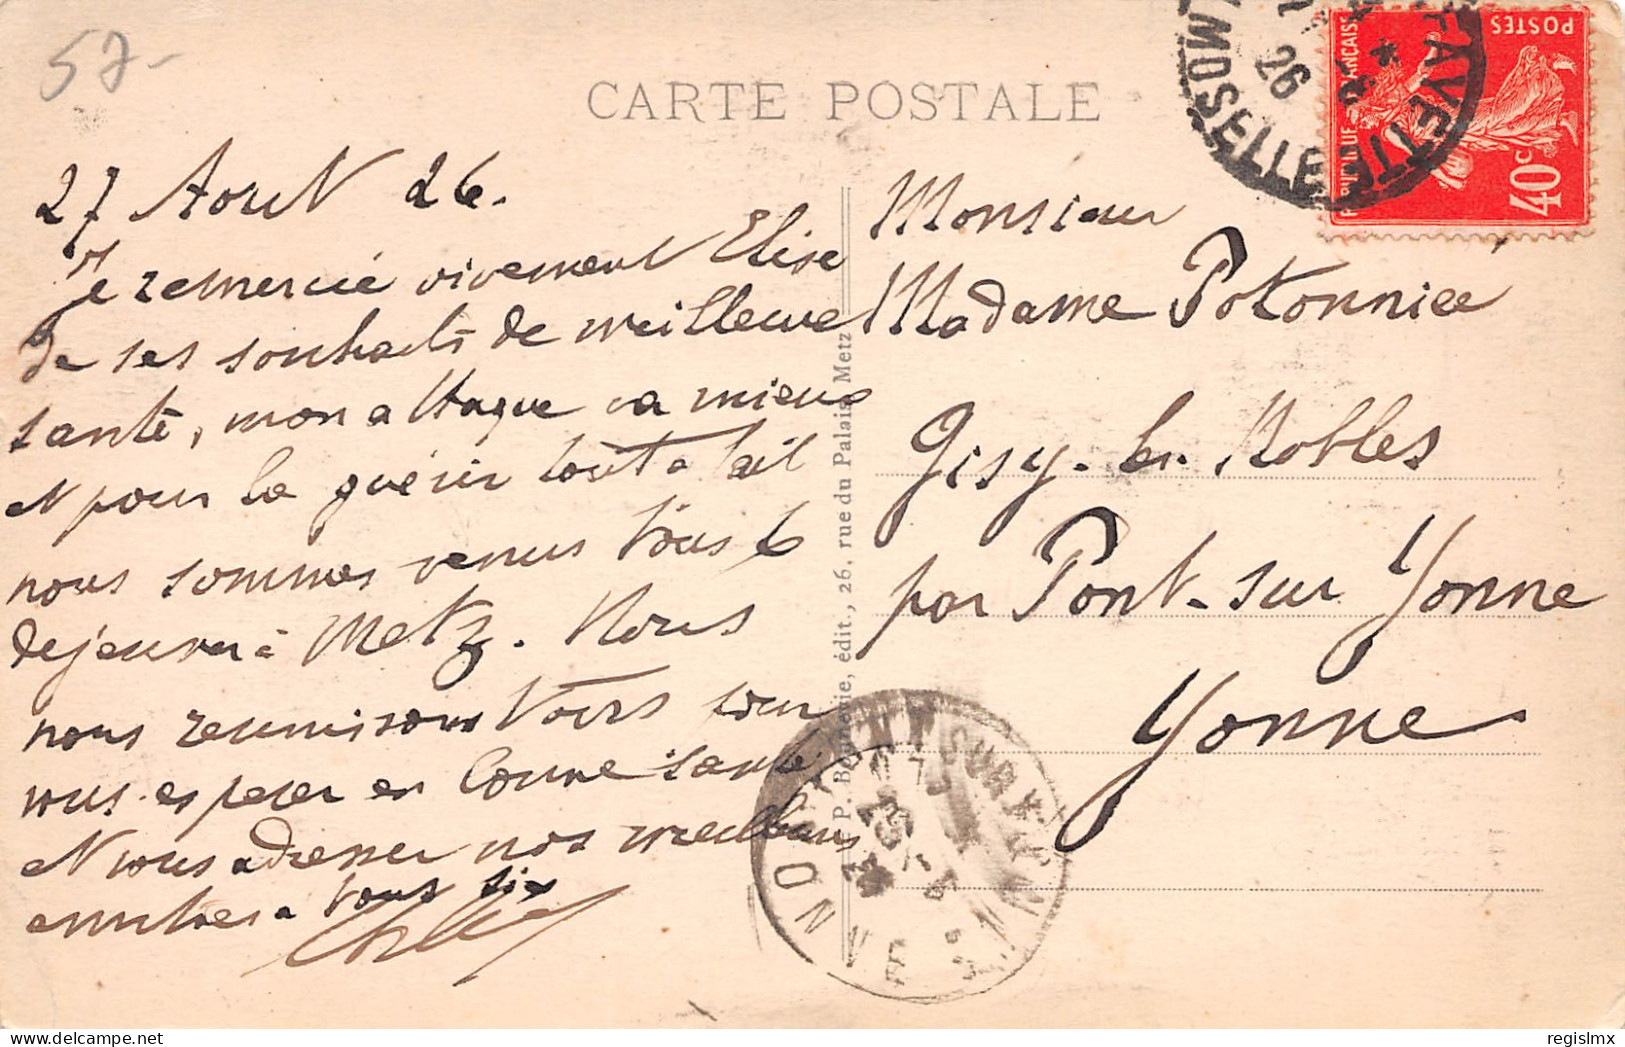 57-
CARTE POSTALE
27 Aout 26.
Je remercie vivement Elise
de ses souhaits de meilleure
santé, mon attaque va mieux
et pour la guérir tout à fait
nous sommes venus tous 6
dejeuner à Metz. Nous
nous reunissons tous pour
vous esperer en bonne santé
et vous adresser nos meilleures
amitiés a tous six
Monsieur
Madame Potonniée
Gisy-les-Nobles
par Pont-sur-Yonne
Yonne
P. Bonnerie, édit., 26, rue du Palais, Metz
26
MOSELLE
POSTES
REPUBLIQUE FRANÇAISE
40c
PONT SUR YONNE
YONNE
regislmx